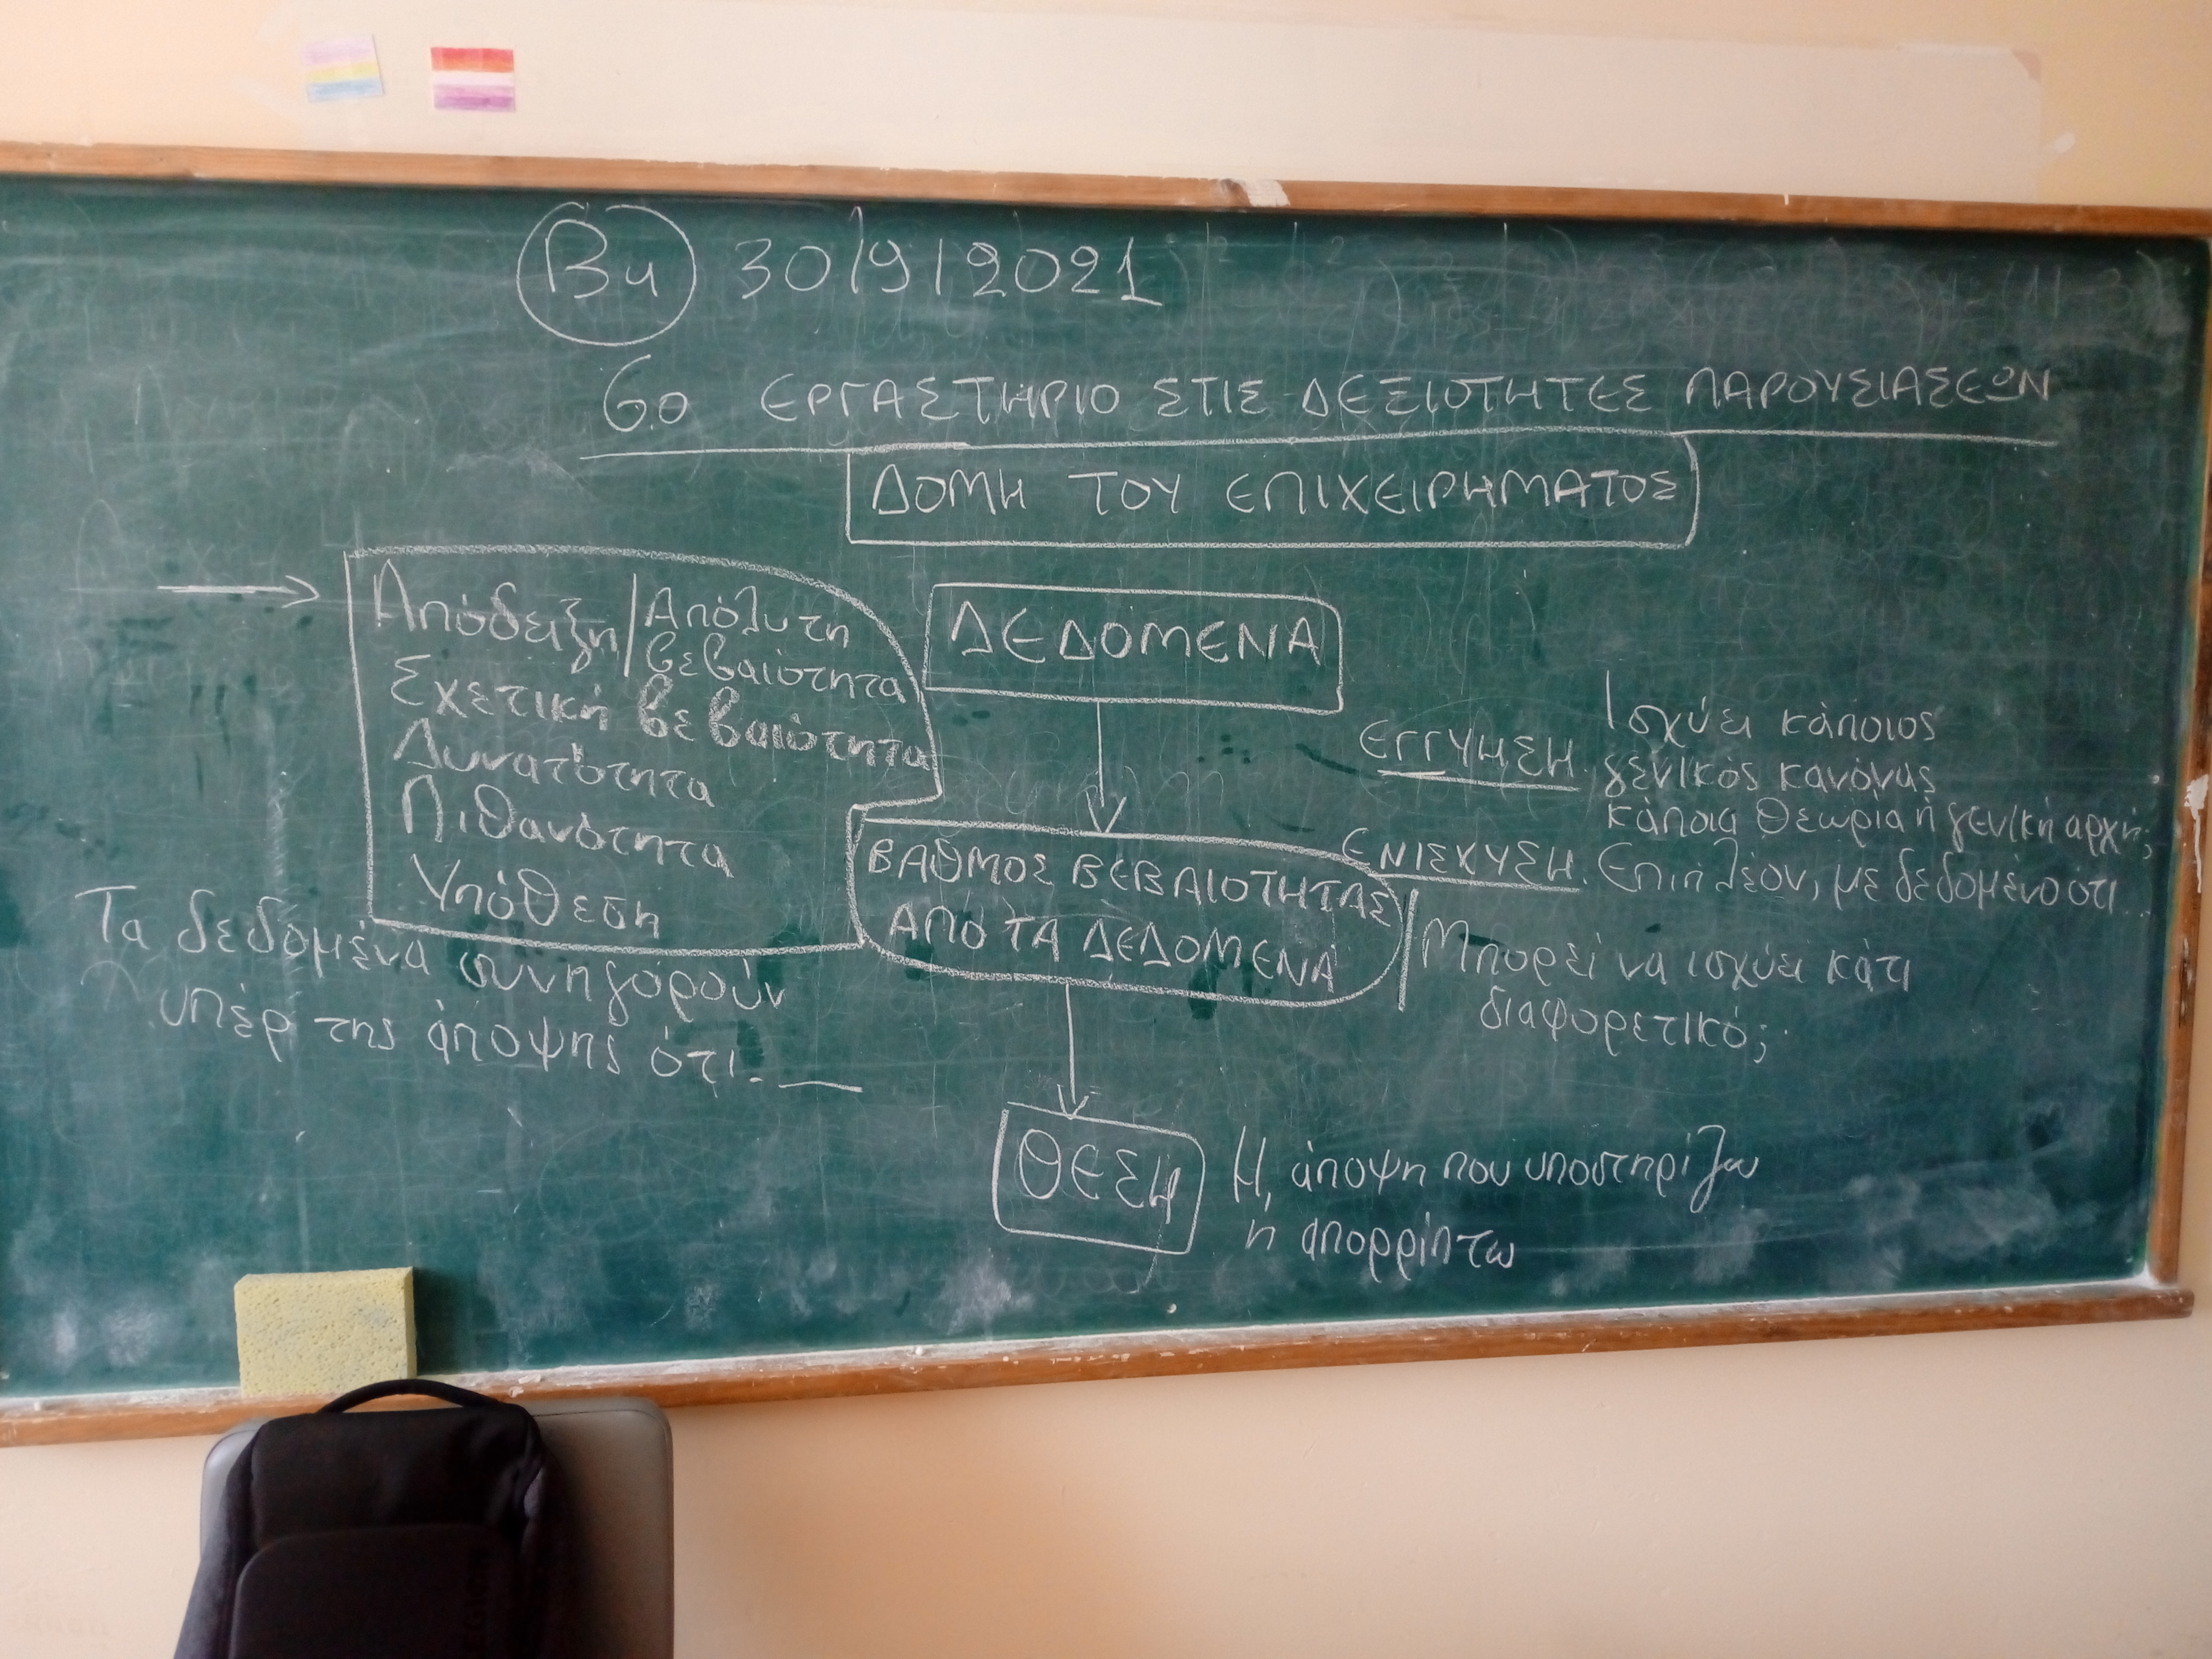 Β4 30/9/2021
6ο ΕΡΓΑΣΤΗΡΙΟ ΣΤΙΣ ΔΕΞΙΟΤΗΤΕΣ ΠΑΡΟΥΣΙΑΣΕΩΝ
ΔΟΜΗ ΤΟΥ ΕΠΙΧΕΙΡΗΜΑΤΟΣ
Απόδειξη/Απόλυτη
βεβαιότητα
Σχετική βεβαιότητα
Δυνατότητα
Πιθανότητα
Υπόθεση
Τα δεδομένα συνηγορούν
υπέρ της άποψης ότι.
ΔΕΔΟΜΕΝΑ
ΒΑΘΜΟΣ ΒΕΒΑΙΟΤΗΤΑΣ
ΑΠΟ ΤΑ ΔΕΔΟΜΕΝΑ
ΕΓΓΥΗΣΗ. Ισχύει κάποιος
γενικός κανόνας
κάποια θεωρία ή γενική αρχή;
ΕΝΙΣΧΥΣΗ. Επιπλέον, με δεδομένο ότι...
Μπορεί να ισχύει κάτι
διαφορετικό;
ΘΕΣΗ
Η άποψη που υποστηρίζω
ή απορρίπτω